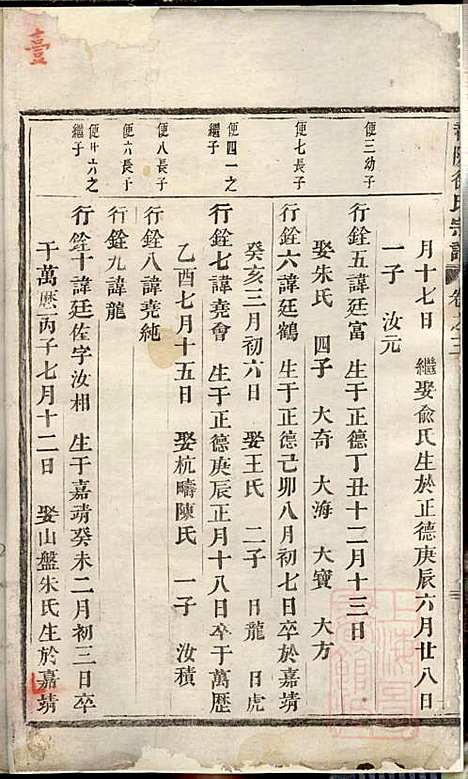 月十七日 繼娶俞氏生於正德庚辰六月廿八日
一子 汝元
便三幼子
行銓五諱廷富 生于正德丁丑十二月十三日
娶朱氏 四子 大奇 大海 大寶 大方
便七長子
行銓六諱廷鶴 生于正德己卯八月初七日卒於嘉靖
癸亥三月初六日 娶王氏 二子 日龍 日虎
便四一之
繼子
行銓七諱堯會 生于正德庚辰正月十八日卒于萬歷
乙酉七月十五日 娶杭疇陳氏 一子 汝積
便八長子
行銓八諱堯純
便六長子
行銓九諱龍
便廿六之
繼子
行銓十諱廷佐字汝相 生于嘉靖癸未二月初三日卒
于萬歷丙子七月十二日 娶山盤朱氏生於嘉靖
氏宗譜 卷之二
臺